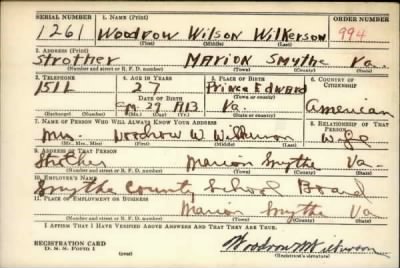 SERIAL NUMBER 1. NAME (Print) ORDER NUMBER
1261 Woodrow Wilson Wilkerson 994
(First) (Middle) (Last)
2. ADDRESS (Print)
Strother Marion Smythe Va.
(Number and street or R. F. D. number) (Town) (County) (State)
3. TELEPHONE 4. AGE IN YEARS 5. PLACE OF BIRTH 6. COUNTRY OF CITIZENSHIP
151L 27 Prince Edward
DATE OF BIRTH (Town or county)
29 1913 Va. American
(Exchange) (Number) (Mo.) (Day) (Yr.) (State or country)
7. NAME OF PERSON WHO WILL ALWAYS KNOW YOUR ADDRESS 8. RELATIONSHIP OF THAT PERSON
Mrs. Woodrow W. Wilkerson Wife
(Mr., Mrs., Miss) (First) (Middle) (Last)
9. ADDRESS OF THAT PERSON
Strother Marion Smythe Va.
(Number and street or R. F. D. number) (Town) (County) (State)
10. EMPLOYER'S NAME
Smythe County School Board
11. PLACE OF EMPLOYMENT OR BUSINESS
Marion Smythe Va
(Number and street or R. F. D. number) (Town) (County) (State)
I AFFIRM THAT I HAVE VERIFIED ABOVE ANSWERS AND THAT THEY ARE TRUE.
REGISTRATION CARD
D. S. S. FORM 1 Woodrow W. Wilkerson
(Registrant's signature)